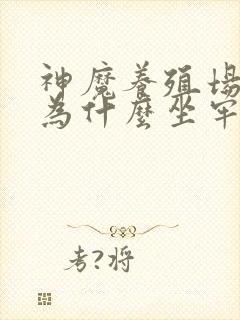 神魔養殖場
為什麼坐牢
考?將